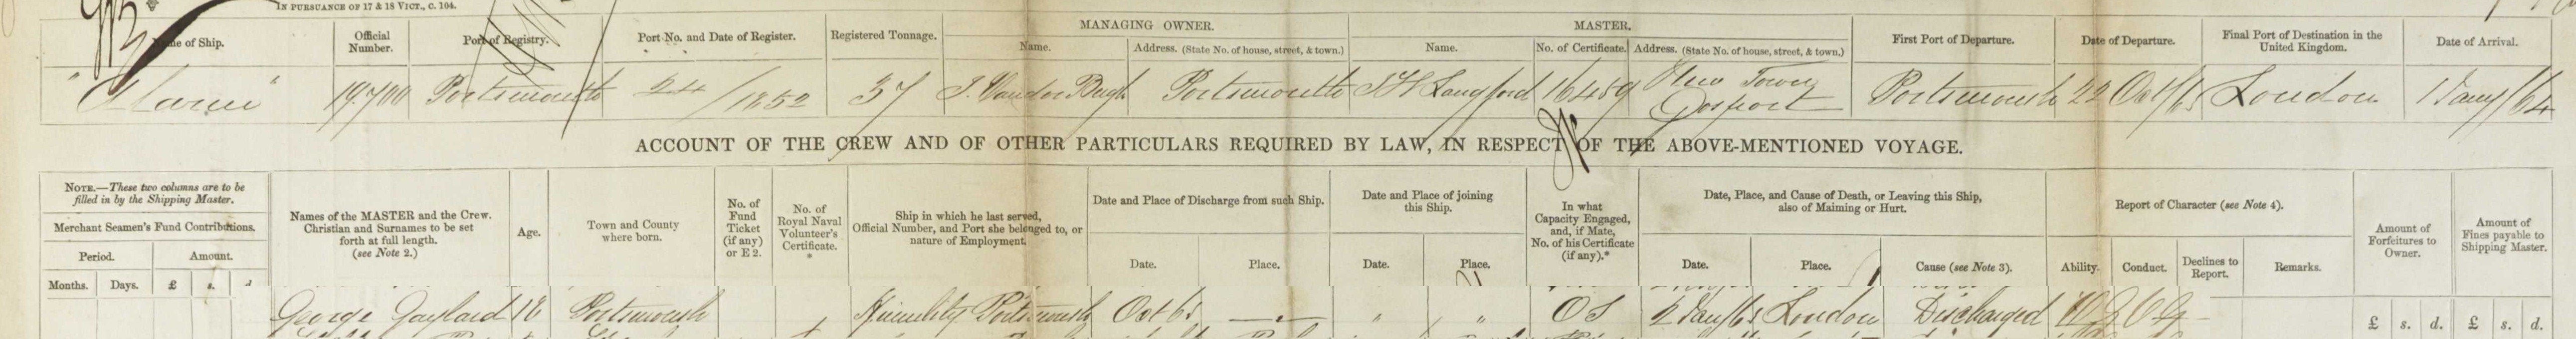 IN PURSUANCE OF 17 & 18 VICT., C. 104.
Name of Ship. Official Number. Port of Registry. Port No. and Date of Register. Registered Tonnage. MANAGING OWNER. Name. Address. (State No. of house, street, & town.) MASTER. Name. No. of Certificate. Address. (State No. of house, street, & town.) First Port of Departure. Date of Departure. Final Port of Destination in the United Kingdom. Date of Arrival.
19700 Portsmouth 24/1852 37 Portsmouth J H Langford 16459 New Town Gosport Portsmouth 22 Oct/65 London 1 Jany/64
ACCOUNT OF THE CREW AND OF OTHER PARTICULARS REQUIRED BY LAW, IN RESPECT OF THE ABOVE-MENTIONED VOYAGE.
NOTE.—These two columns are to be filled in by the Shipping Master.
Merchant Seamen's Fund Contributions.
Period. Amount.
Months. Days. £ s. d
Names of the MASTER and the Crew. Christian and Surnames to be set forth at full length. (see Note 2.)
Age.
Town and County where born.
No. of Fund Ticket (if any) or E 2.
No. of Royal Naval Volunteer's Certificate. *
Ship in which he last served, Official Number, and Port she belonged to, or nature of Employment.
Date and Place of Discharge from such Ship.
Date. Place.
Date and Place of joining this Ship.
Date. Place.
In what Capacity Engaged, and, if Mate, No. of his Certificate (if any).*
Date, Place, and Cause of Death, or Leaving this Ship, also of Maiming or Hurt.
Date. Place. Cause (see Note 3).
Report of Character (see Note 4).
Ability. Conduct. Declines to Report. Remarks.
Amount of Forfeitures to Owner.
Amount of Fines payable to Shipping Master.
£ s. d. £ s. d.
George Gaylard 18 Portsmouth Humility Portsmouth Oct 65 — " " OS 2 Jany/65 London Discharged